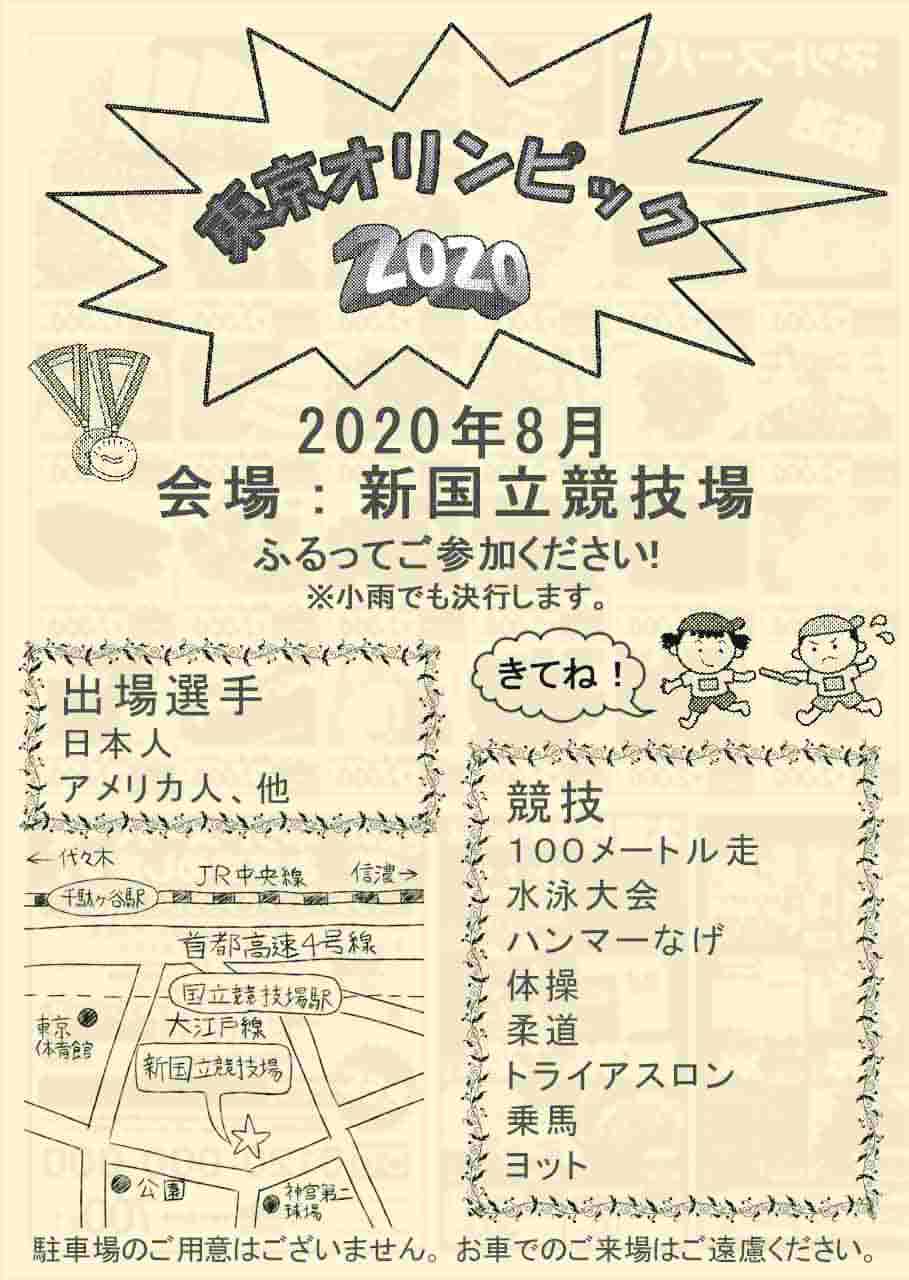 東京オリンピック
2020
2020年8月
会場：新国立競技場
ふるってご参加ください!
※小雨でも決行します。
きてね！
出場選手
日本人
アメリカ人、他
競技
１００メートル走
水泳大会
ハンマーなげ
体操
柔道
トライアスロン
乗馬
ヨット
←代々木
JR中央線
信濃→
千駄ヶ谷駅
首都高速4号線
国立競技場駅
大江戸線
東京
体育館
新国立競技場
公園
神宮第二
球場
駐車場のご用意はございません。お車でのご来場はご遠慮ください。